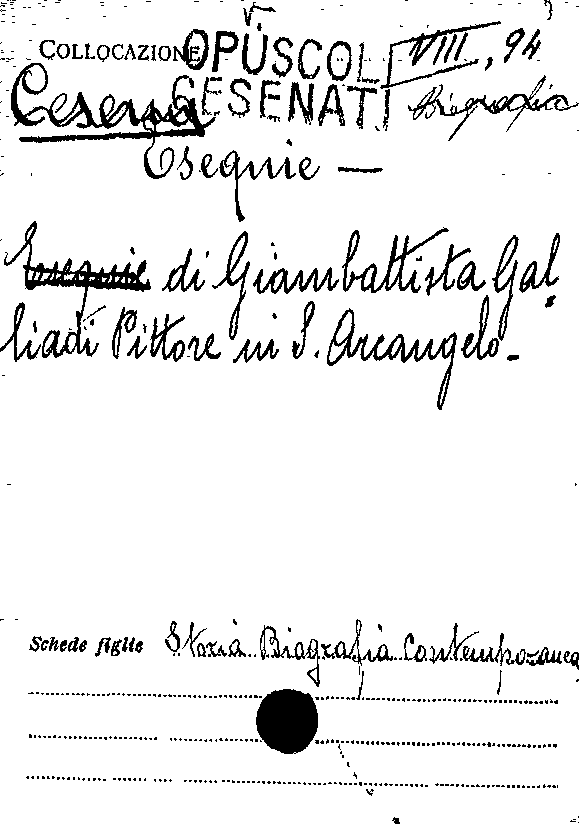 COLLOCAZIONE OPUSCOLI VIII, 94
Cesena CESENATI Biografia
Esequie —
Esequie di Giambattista Gal
liadi Pittore in S. Arcangelo.
Schede figlie Storia Biografia Contemporanea